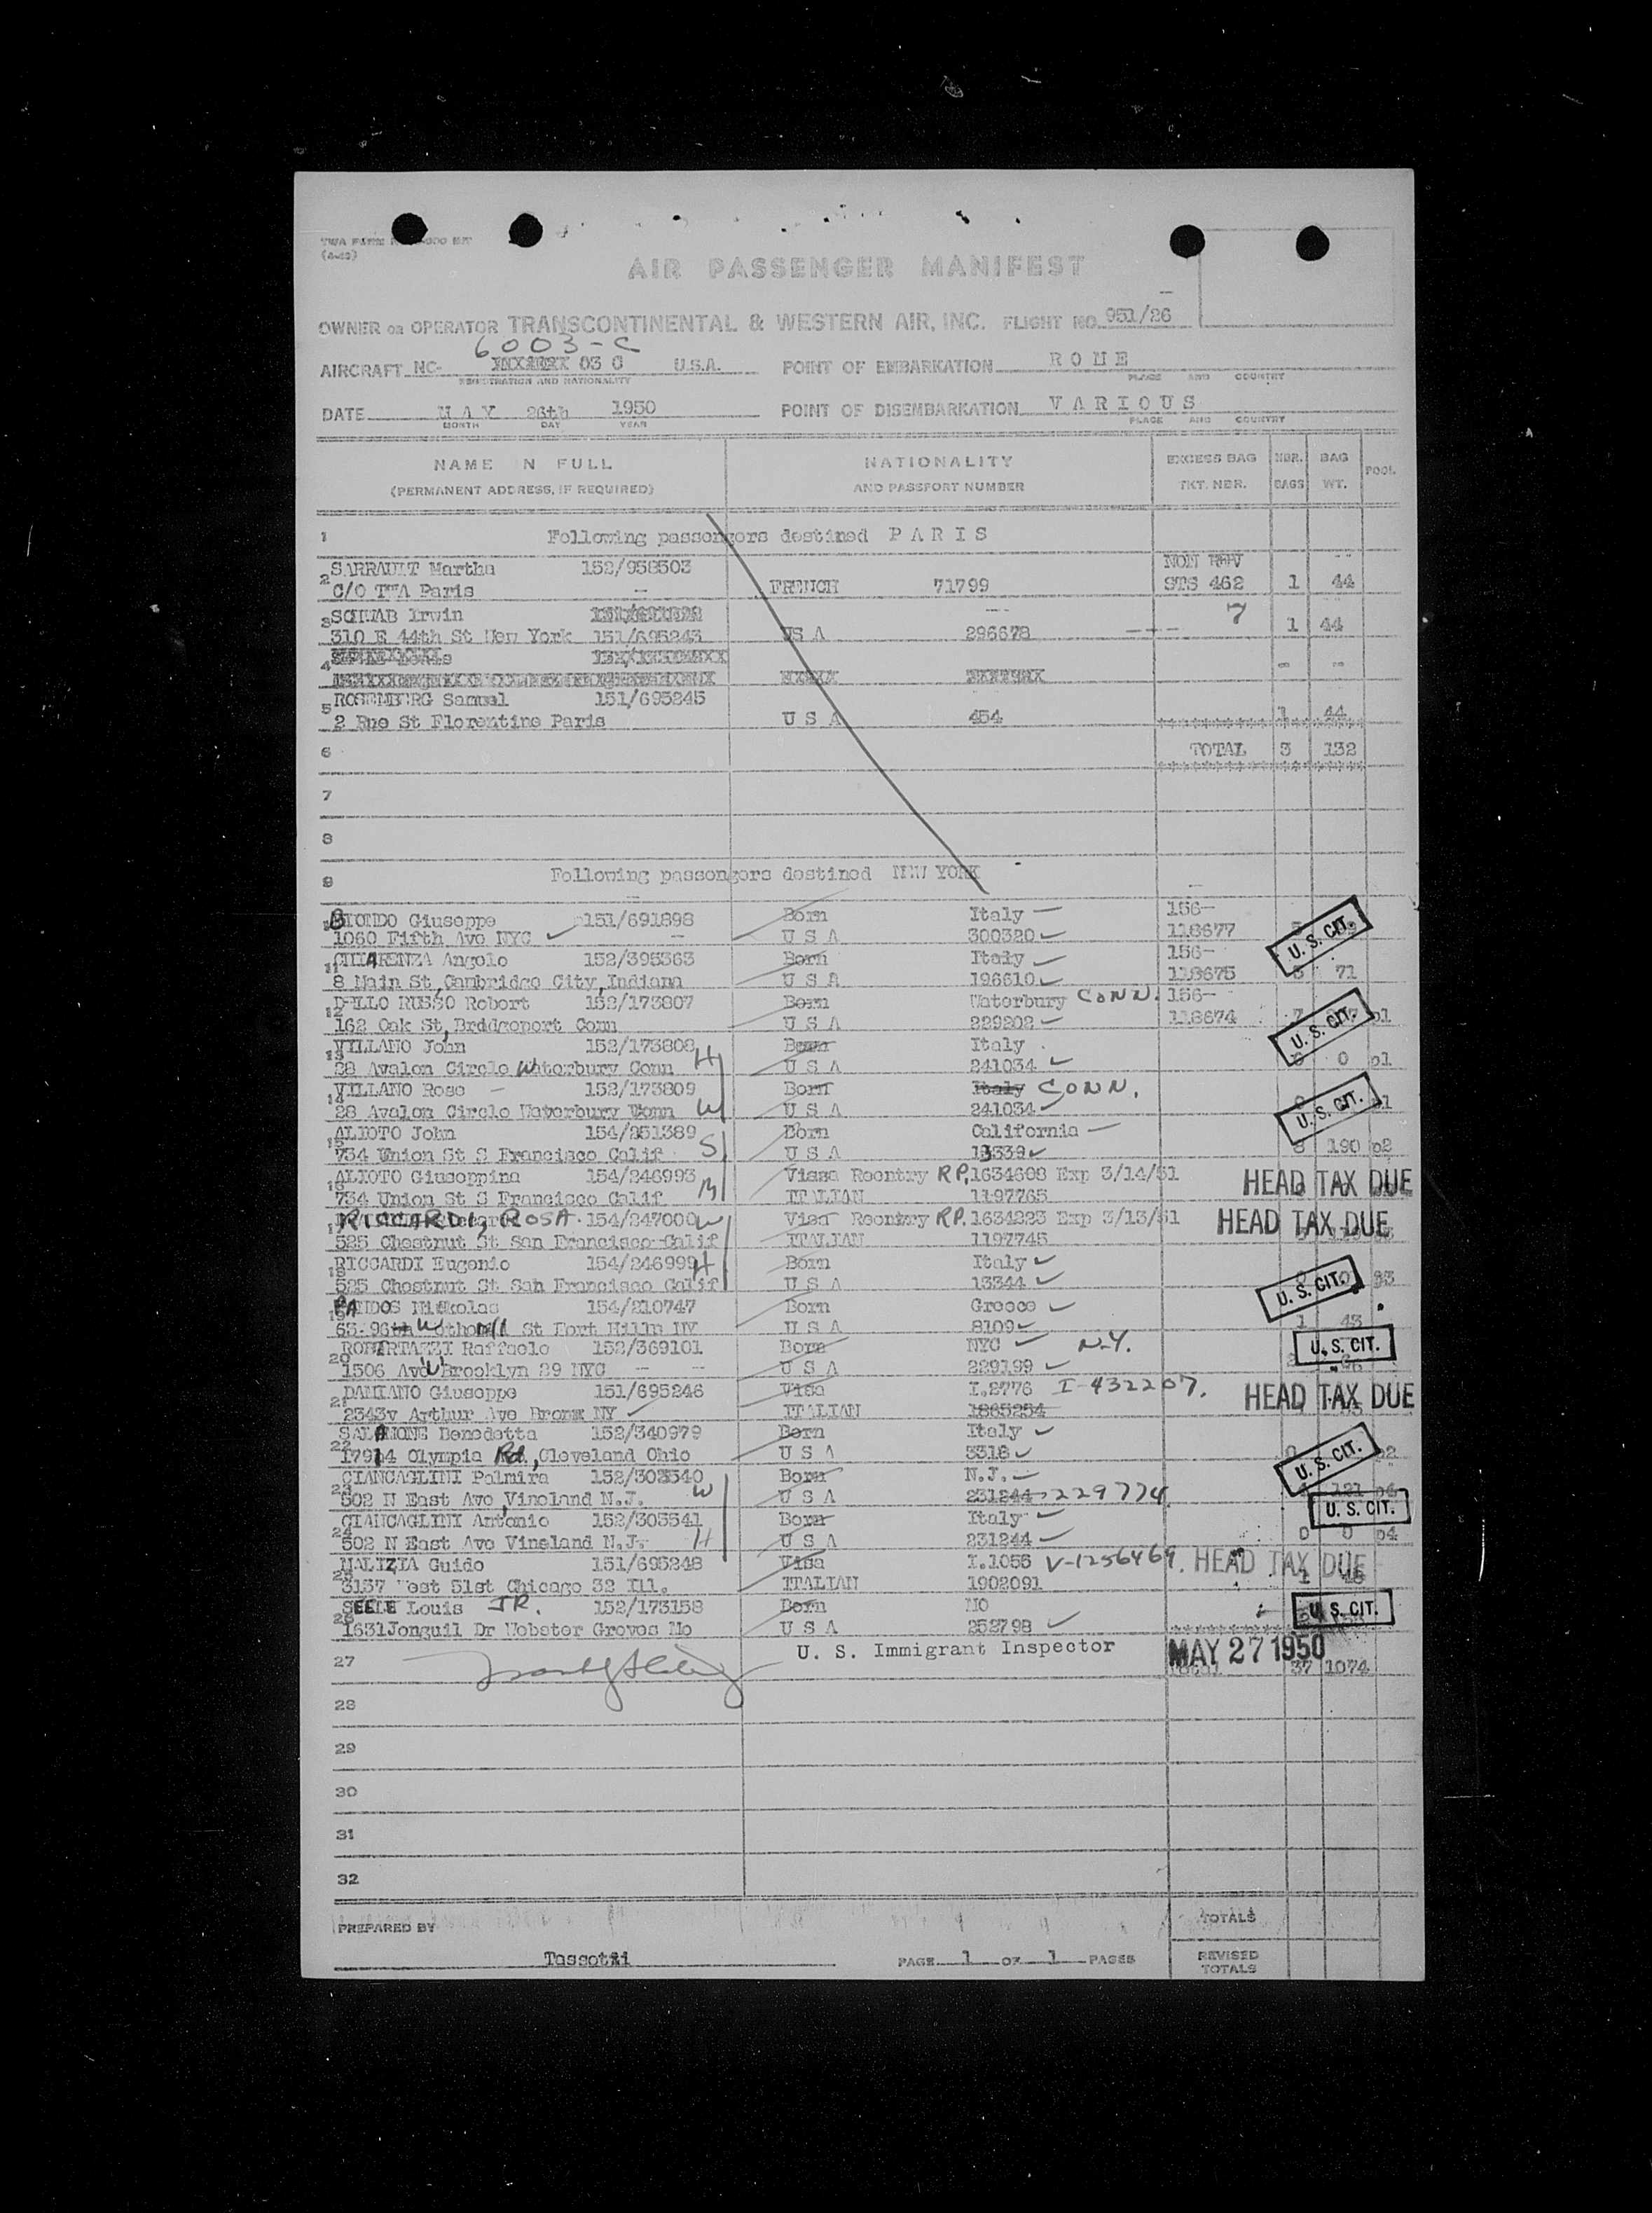 TWA FORM
(4-49)
AIR PASSENGER MANIFEST
OWNER OR OPERATOR TRANSCONTINENTAL & WESTERN AIR, INC. FLIGHT NO. 951/26
6003-C
AIRCRAFT NC- 03 C U.S.A. POINT OF EMBARKATION ROME
REGISTRATION AND NATIONALITY PLACE AND COUNTRY
DATE MAY 26th 1950 POINT OF DISEMBARKATION VARIOUS
MONTH DAY YEAR PLACE AND COUNTRY
NAME N FULL NATIONALITY EXCESS BAG NBR. BAG POOL
(PERMANENT ADDRESS, IF REQUIRED) AND PASSPORT NUMBER TKT. NBR. BAGS WT.
1 Following passengers destined PARIS
SARRAULT Martha 152/958503 NON REV
2 C/O TWA Paris - FRENCH 71799 STS 462 1 44
3 SCHWAB Irwin 7
310 E 44th St New York 151/695243 US A 296678 1 44
4
5 ROSENBERG Samuel 151/695245
2 Rue St Florentine Paris U S A 454 1 44
6 TOTAL 3 132
7
8
9 Following passengers destined NEW YORK
BIONDO Giuseppe 151/691898 Born Italy 156-
1060 Fifth Ave NYC U S A 300320 118677 U. S. CIT.
11 CHIARENZA Angelo 152/395363 Born Italy 156-
8 Main St, Cambridge City, Indiana U S A 196610 118675 71
12 DELLO RUSSO Robert 152/173807 Born Waterbury CONN. 156-
162 Oak St, Brddgeport Conn U S A 229202 118674 7 p1 U. S. CIT.
13 VILLANO John 152/173808 H Born Italy
28 Avalon Circle Waterbury Conn U S A 241034 0 0 p1
14 VILLANO Rose - 152/173809 Born Italy CONN.
28 Avalon Circle Waterbury Conn W U S A 241034 U. S. CIT.
15 ALIOTO John 154/251389 S Born California
734 Union St S Francisco Calif U S A 13339 190 p2
16 ALIOTO Giuseppina 154/246993 M Vissa Reentry RP. 1634608 Exp 3/14/51 HEAD TAX DUE
734 Union St S Francisco Calif ITALIAN 1197765
RICCARDI, ROSA 154/247000 W Visa Reentry RP. 1634223 Exp 3/13/51 HEAD TAX DUE
525 Chestnut St San Francisco Calif ITALIAN 1197745
18 RICCARDI Eugenio 154/246999 H Born Italy
525 Chestnut St Sah Francisco Calif U S A 13344 U. S. CIT. p3
19 PANDOS Nickolas 154/210747 Born Greece
U S A 8109 1 43
20 ROBERTAZZI Raffaele 152/369101 Born NYC N.Y. U. S. CIT.
1506 Ave W Brooklyn 29 NYC U S A 229199
21 DAMIANO Giuseppe 151/695246 Visa I.2776 I-432207. HEAD TAX DUE
2343v Arthur Ave Bronx NY ITALIAN 1865254
22 SALAMONE Benedetta 152/340979 Born Italy
17914 Olympia Rd, Cleveland Ohio U S A 3318 U. S. CIT. p2
23 CIANCAGLINI Palmira 152/303540 W Born N.J.
502 N East Ave, Vineland N.J. U S A 231244 229774 121 p4 U. S. CIT.
24 CIANCAGLINI Antonio 152/303541 H Born Italy
502 N East Ave Vineland N.J. U S A 231244 0 0 p4
25 MALIZIA Guido 151/695248 Visa I.1056 V-1256469. HEAD TAX DUE
3137 West 51st Chicago 32 Ill. ITALIAN 1902091
26 SEELE Louis JR. 152/173158 Born MO U. S. CIT.
1631Jonquil Dr Webster Groves Mo U S A 252798
27 U. S. Immigrant Inspector MAY 27 1950
Total 37 1074
28
29
30
31
32
PREPARED BY TOTALS
Tassotti PAGE 1 OF 1 PAGES REVISED
TOTALS